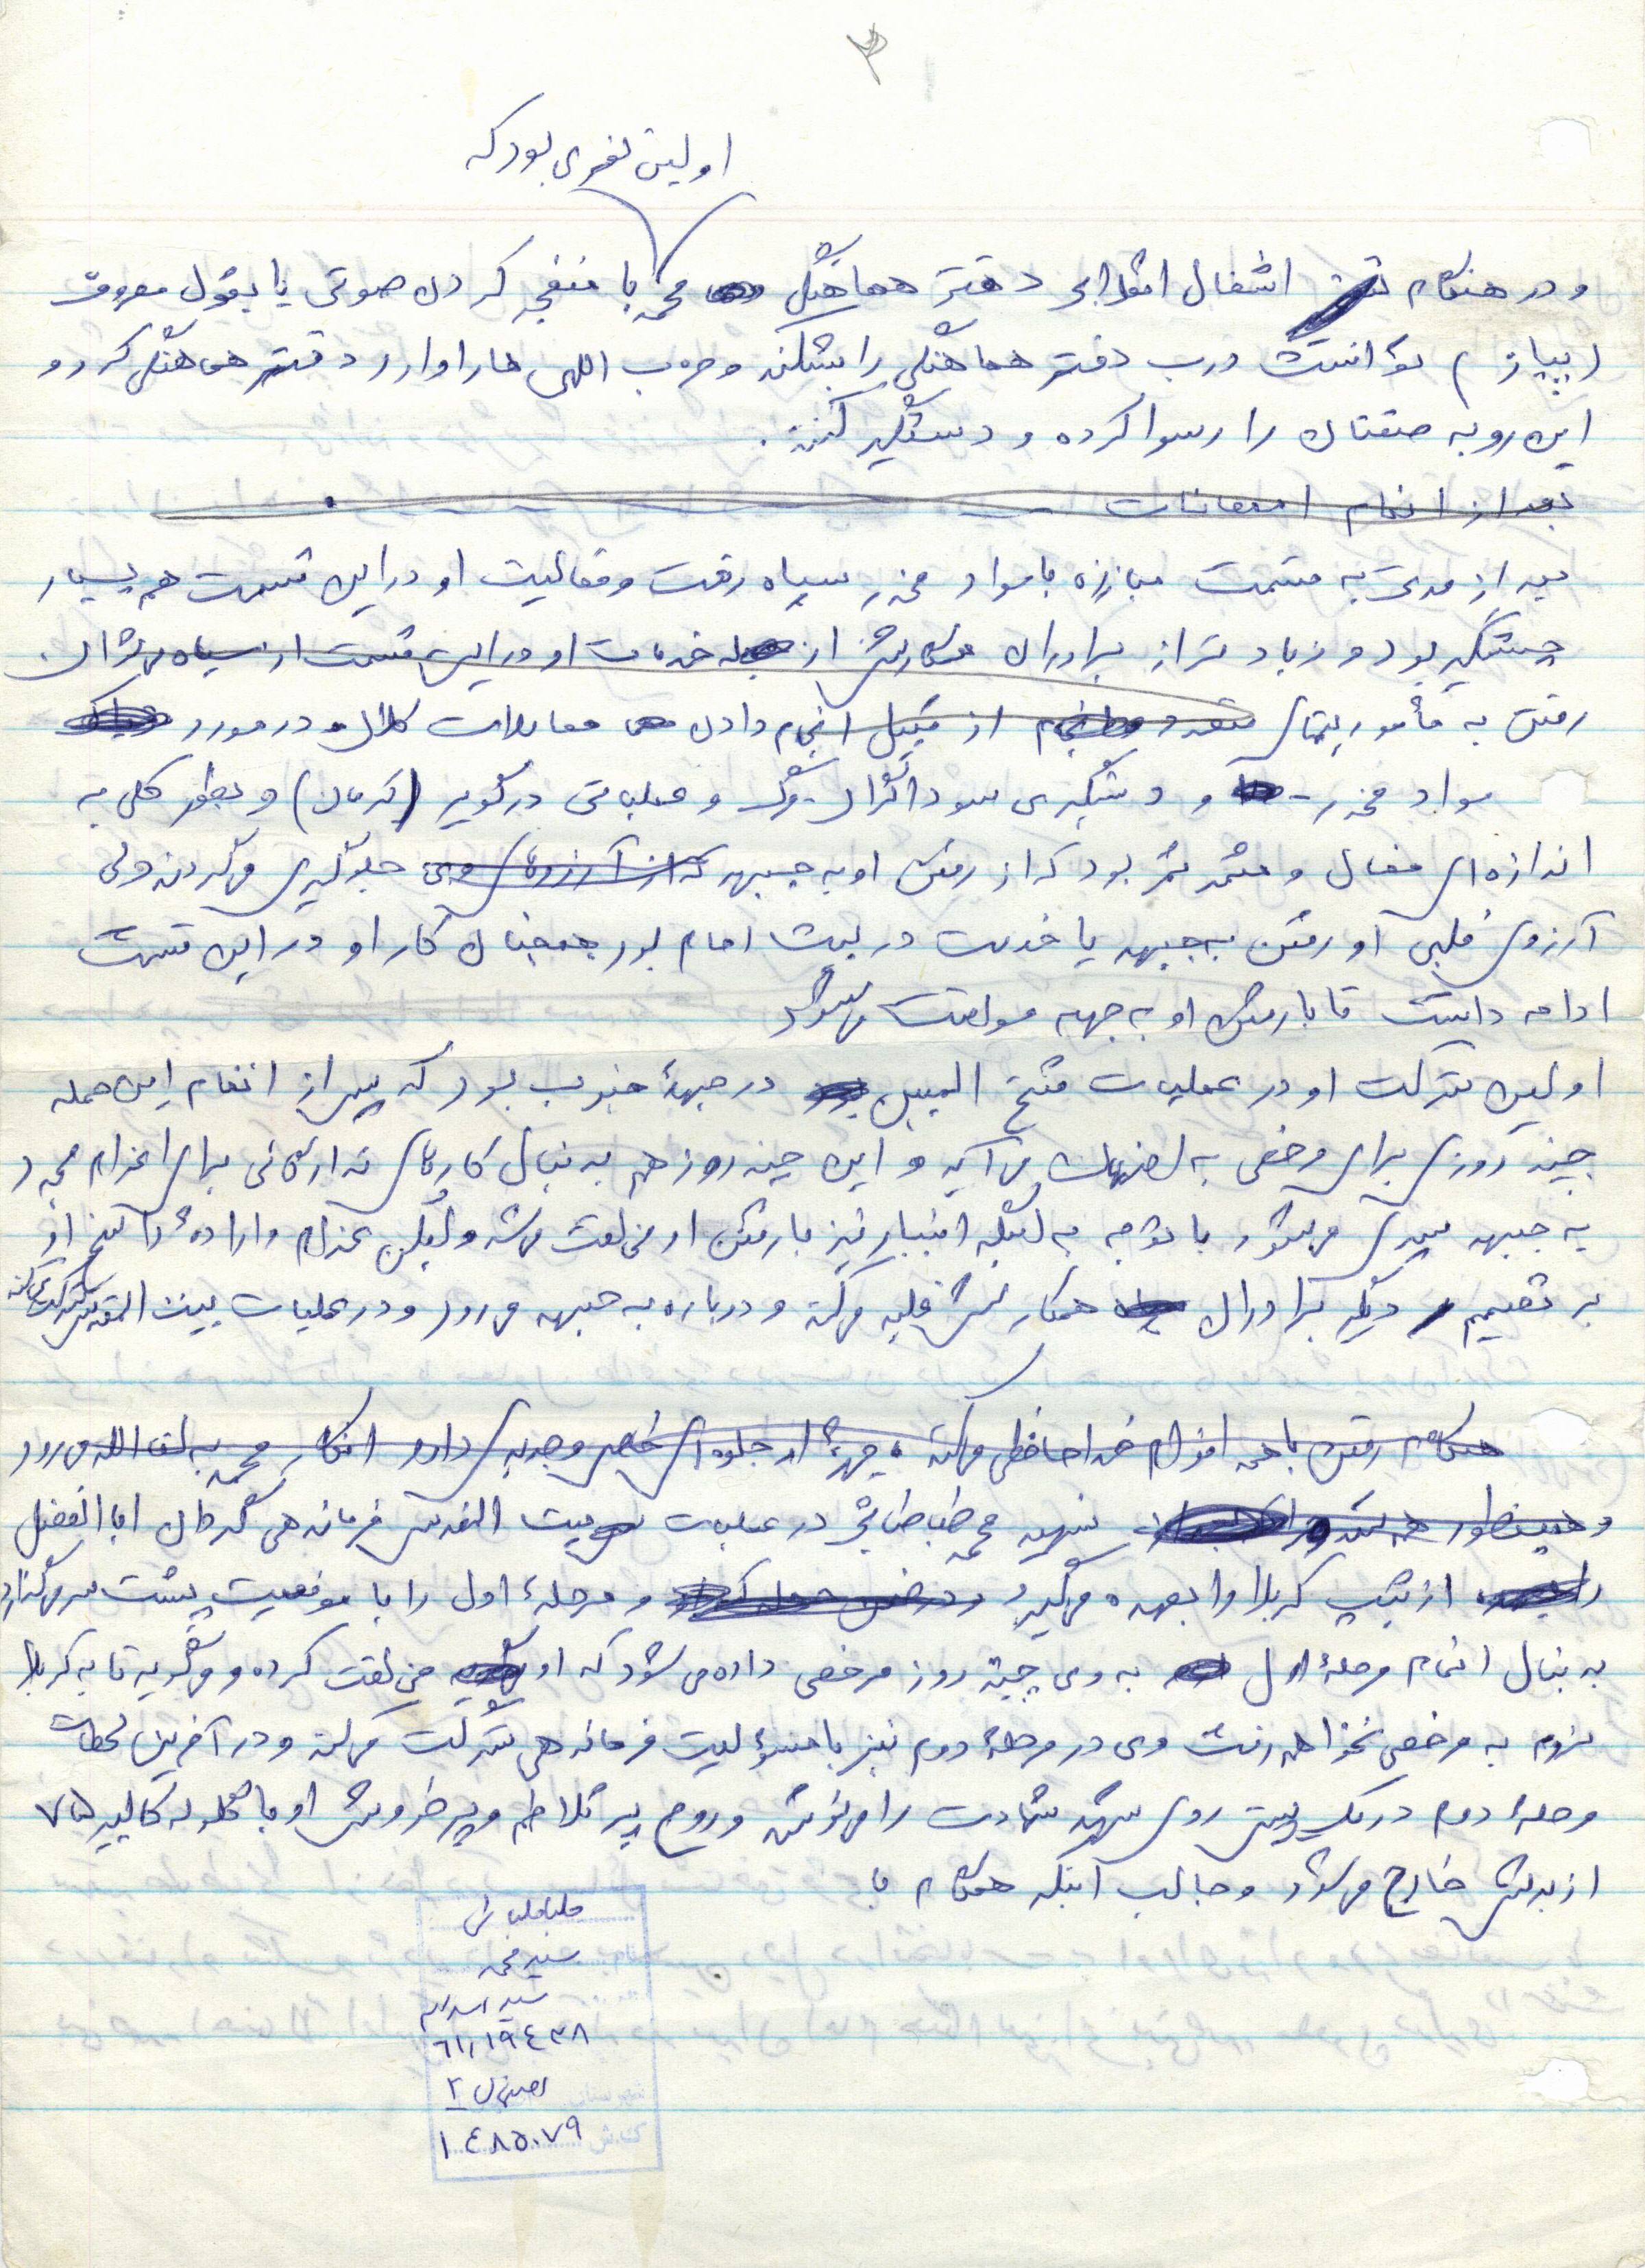 ۳
اولین نفری بود که
و در هنگام اشغال انقلابی دفتر هماهنگی محمد با منفجر کردن صوتی یا بقول معروف
(پیاز) توانست درب دفتر هماهنگی را بشکند و حزب اللهی ها را وارد دفتر هماهنگی کرد و
این روبه صفتان را رسوا کرده و دستگیر کنند.
بعد از اتمام امتحانات
بعد از مدتی به قسمت مبارزه با مواد مخدر سپاه رفت و فعالیت او در این قسمت هم بسیار
چشمگیر بود و زیادتر از برادران همکارش از جمله خدمات او در این قسمت از سپاه میتوان
رفتن به مأموریتهای متعدد از قبیل انجام دادن معاملات کلان در مورد
مواد مخدر و دستگیری سوداگران مرگ و عملیاتی در کویر (کرمان) و بطور کلی به
اندازه ای فعال و مثمر ثمر بود که از رفتن او به جبهه که از آرزوهای وی جلوگیری میکردند ولی
آرزوی قلبی او رفتن به جبهه یا خدمت در بیت امام بود همچنان کار او در این قسمت
ادامه داشت تا با رفتن او به جبهه موافقت میشود
اولین شرکت او در عملیات فتح المبین در جبههٔ جنوب بود که پس از اتمام این حمله
چند روزی برای مرخصی به اصفهان می آید و این چند روز هم به دنبال کارهای تدارکاتی برای اعزام مجدد
به جبهه سپری میشود با توجه به اینکه اینبار نیز با رفتن او مخالفت میشد ولیکن عزم و ارادهٔ راسخ او
بر تصمیم دیگر برادران همکارش غلبه میکند و دوباره به جبهه میرود و در عملیات بیت المقدس شرکت میکند
هنگام رفتن با همه اقوام خداحافظی میکند، چهره اش جلوه ای خاص و جدید دارد انگار محمد به لقاء الله میرود
و همینطور هم شهید محمد طباطبائی در عملیات بیت المقدس فرماندهی گردان ابا الفضل
را از تیپ کربلا را بعهده میگیرد و مرحلهٔ اول را با موفقیت پشت سر میگذارد
به دنبال اتمام مرحلهٔ اول به وی چند روز مرخصی داده می شود که او مخالفت کرده و میگوید تا به کربلا
نروم به مرخصی نخواهم رفت وی در مرحلهٔ دوم نیز با مسؤلیت فرماندهی شرکت میکند و در آخرین لحظات
مرحلهٔ دوم در یک پیش روی شهد شهادت را مینوشد و روح پر تلاطم و پر خروش او با گلوله کالیبر ۷۵
از بدنش خارج میشود و جالب اینکه هنگام با
طباطبائی
نام سید محمد
سید اسداله
۶۱/۱۹۴۳۸
شهرستان اصفهان ۲
کد ش ۱۴۸۵۰۷۹